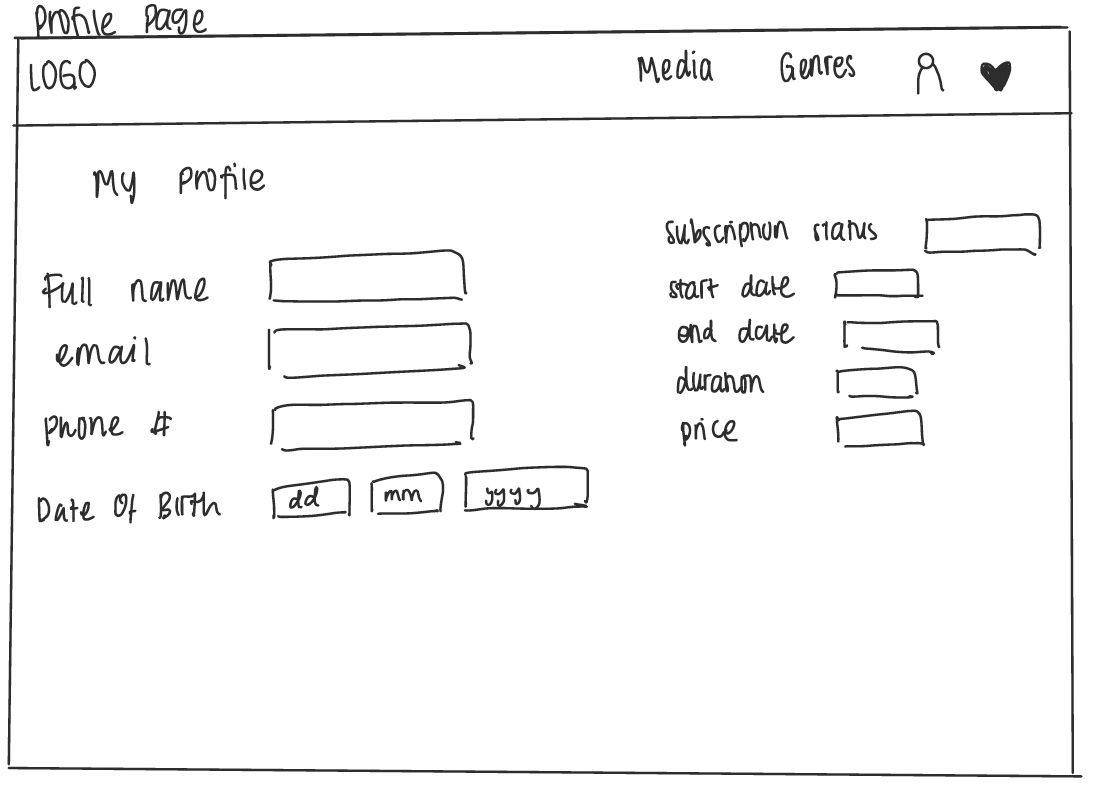 Profile Page
LOGO Media Genres
My Profile
Full name
email
phone #
Date Of Birth dd mm yyyy
subscription status
start date
end date
duration
price